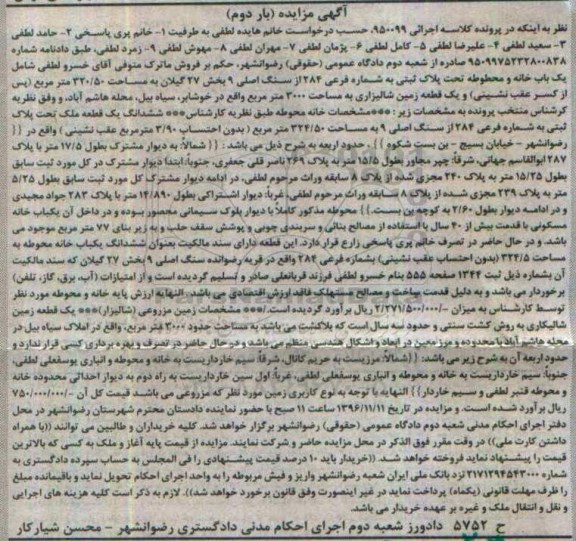 آگهی مزایده (بار دوم)
نظر به اینکه در پرونده کلاسه اجرائی ۹۵۰۰۹۹، حسب درخواست خانم هایده لطفی به طرفیت ۱- خانم پری پاسخی ۲- حامد لطفی
۳- سعید لطفی ۴- علیرضا لطفی ۵- کامل لطفی ۶- پژمان لطفی ۷- مهران لطفی ۸- مهوش لطفی ۹- زمرد لطفی، طبق دادنامه شماره
۹۵۰۹۹۷۵۲۳۲۸۰۰۸۳۸ صادره از شعبه دوم دادگاه عمومی (حقوقی) رضوانشهر، حکم بر فروش ماترک متوفی آقای خسرو لطفی شامل
یک باب خانه و محوطه تحت پلاک ثبتی به شماره فرعی ۲۸۴ از سنگ اصلی ۹ بخش ۲۷ گیلان به مساحت ۳۲۰/۵۰ متر مربع (پس
از کسر عقب نشینی) و یک قطعه زمین شالیزاری به مساحت ۳۰۰۰ متر مربع واقع در خوشابر، سیاه بیل، محله هاشم آباد، و وفق نظریه
کارشناس منتخب پرونده به مشخصات زیر : ***مشخصات خانه محوطه طبق نظریه کارشناس*** ششدانگ یک قطعه ملک تحت پلاک
ثبتی به شماره فرعی ۲۸۴ از سنگ اصلی ۹ به مساحت ۳۲۴/۵۰ متر مربع ( بدون احتساب ۳/۹۰ مترمربع عقب نشینی ) واقع در {{
رضوانشهر - خیابان بسیج - بن بست شکوه }} . حدود اربعه به شرح ذیل می باشد : {{ شمالاً: به دیوار مشترک بطول ۱۷/۵ متر با پلاک
۲۸۷ ابوالقاسم جهانی، شرقاً: چپر مجاور بطول ۱۵/۵ متر به پلاک ۲۶۹ ناصر قلی جعفری، جنوباً: ابتدا دیوار مشترک در کل مورد ثبت سابق
بطول ۱۵/۲۵ متر به پلاک ۲۴۰ مجزی شده از پلاک ۸ سابقه وراث مرحوم لطفی، در ادامه دیوار مشترک کل مورد ثبت سابق بطول ۵/۲۵
متر به پلاک ۲۳۹ مجزی شده از پلاک ۸ سابقه وراث مرحوم لطفی، غرباً: دیوار اشتراکی بطول ۱۴/۸۹۰ متر با پلاک ۲۸۳ جواد مجیدی
و در ادامه دیوار بطول ۲/۶۰ به کوچه بن بست. }} محوطه مذکور کاملاً با دیوار بلوک سیمانی محصور بوده و در داخل آن یکباب خانه
مسکونی با قدمت بیش از ۴۰ سال با استفاده از مصالح بنائی و سربندی چوبی و پوشش سقف حلب و به زیر بنای ۷۷ متر مربع موجود می
باشد. و در حال حاضر در تصرف خانم پری پاسخی زارع قرار دارد. این قطعه دارای سند مالکیت بعنوان ششدانگ یکباب خانه محوطه به
مساحت ۳۲۴/۵ (بدون احتساب عقب نشینی) بشماره فرعی ۲۸۴ واقع در قریه رضوانده سنگ اصلی ۹ بخش ۲۷ گیلان که سند مالکیت
آن بشماره ذیل ثبت ۱۳۴۴ صفحه ۵۵۵ بنام خسرو لطفی فرزند قربانعلی صادر و تسلیم گردیده است و از امتیازات (آب، برق، گاز، تلفن)
برخوردار می باشد و به دلیل قدمت ساخت و مصالح مستهلک فاقد ارزش اقتصادی می باشد. النهایه ارزش پایه خانه و محوطه مورد نظر
توسط کارشناس به میزان -/۲/۲۷۱/۵۰۰/۰۰۰ ریال برآورد گردیده است./*** مشخصات زمین مزروعی (شالیزار)*** یک قطعه زمین
شالیکاری به روش کشت سنتی و حدود سه سال است که بلاکشت می باشد به مساحت حدود ۳۰۰۰ متر مربع، واقع در املاک سیاه بیل در
محله هاشم آباد با محدوده و مرزمعین در ابعاد و اشکال هندسی منظم می باشد و در حال حاضر در تصرف و بهره برداری کسی قرار ندارد و
حدود اربعه آن به شرح زیر می باشد: {{شمالاً: مرزیست به حریم کانال، شرقاً: سیم خارداریست به خانه و محوطه و انباری یوسفعلی لطفی،
جنوباً: سیم خارداریست به خانه و محوطه و انباری یوسفعلی لطفی، غرباً: اول سین خارداریست به راه دوم به دیوار احداثی محدوده خانه
و محوطه قنبر لطفی و سیم خاردار}} النهایه با توجه به نوع کاربری زمین مورد نظر که مزروعی می باشید قیمت کل آن -/۷۵۰/۰۰۰/۰۰۰
ریال برآورد شده است. و مزایده در تاریخ ۱۳۹۶/۱۱/۱۱ ساعت ۱۱ صبح با حضور نماینده دادستان محترم شهرستان رضوانشهر در محل
دفتر اجرای احکام مدنی شعبه دوم دادگاه عمومی (حقوقی) رضوانشهر برگزار خواهد شد. کلیه خریداران و طالبین می توانند ((با همراه
داشتن کارت ملی)) در وقت مقرر فوق الذکر در محل مزایده حاضر و شرکت نمایند. مزایده از قیمت پایه آغاز و ملک به کسی که بالاترین
قیمت را پیشنهاد نماید فروخته خواهد شد. ((خریدار باید ۱۰ درصد قیمت پیشنهادی را فی المجلس به حساب سپرده دادگستری به
شماره ۲۱۷۱۲۹۴۵۴۳۰۰۰ نزد بانک ملی ایران شعبه رضوانشهر واریز و فیش مربوطه را به واحد اجرای احکام تحویل نماید و باقیمانده مبلغ
را ظرف مهلت قانونی (یکماه) پرداخت نماید در غیر اینصورت وفق قانون برخورد خواهد شد)). لازم به ذکر است کلیه هزینه های اجرایی
و نقل و انتقال ملک و غیره بر عهده خریدار می باشد.
ح ۵۷۵۲ دادورز شعبه دوم اجرای احکام مدنی دادگستری رضوانشهر - محسن شیارکار